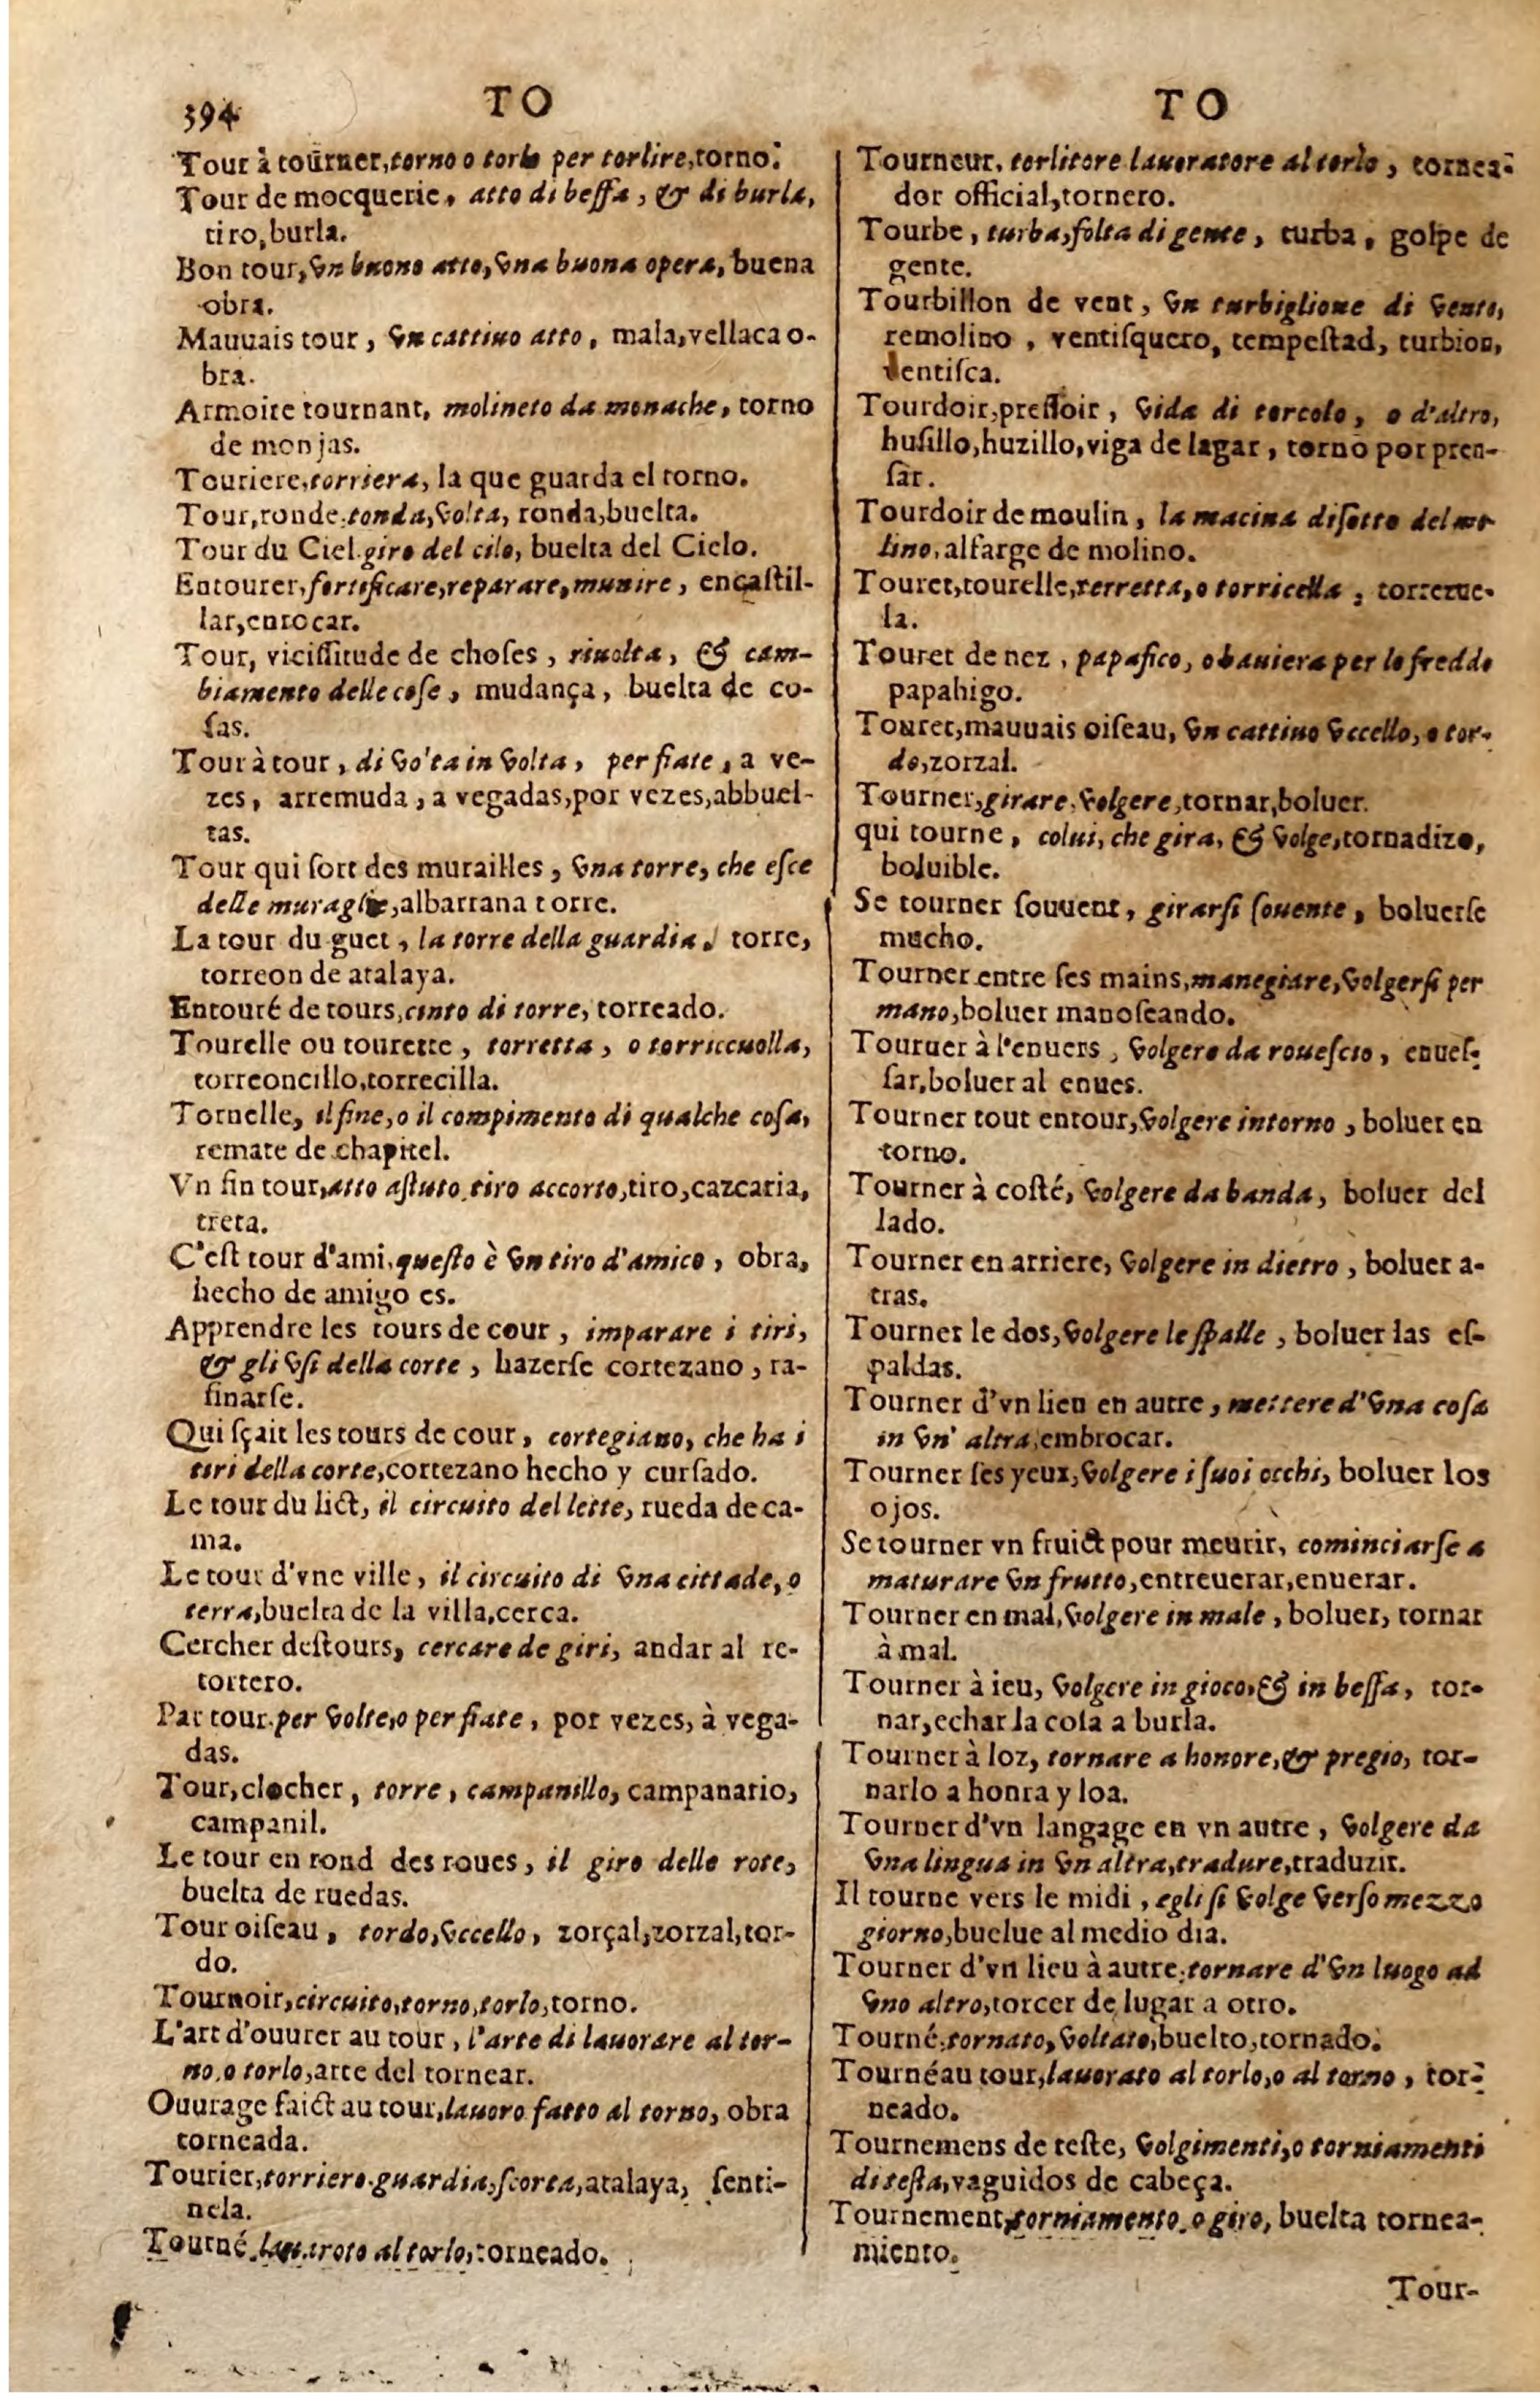 394
TO
Tour à tourner, torno o torlo per torlire, torno.
Tour de mocquerie, atto di beffa, & di burla,
tiro, burla.
Bon tour, vn buono atto, vna buona opera, buena
obra.
Mauuais tour, vn cattiuo atto, mala, vellaca o-
bra.
Armoire tournant, molineto da monache, torno
de monjas.
Touriere, torriera, la que guarda el torno.
Tour, ronde, tonda, volta, ronda, buelta.
Tour du Ciel giro del cilo, buelta del Cielo.
Entourer, fortificare, reparare, munire, encastil-
lar, entocar.
Tour, vicissitude de choses, riuolta, & cam-
biamento delle cose, mudança, buelta de co-
sas.
Tour à tour, di volta in volta, per fiate, a ve-
zes, arremuda, a vegadas, por vezes, abbuel-
tas.
Tour qui sort des murailles, vna torre, che esce
delle muraglie, albarrana torre.
La tour du guet, la torre della guardia, torre,
torreon de atalaya.
Entouré de tours, cinto di torre, torreado.
Tourelle ou tourette, torretta, o torriccuolla,
torreoncillo, torrecilla.
Tornelle, il fine, o il compimento di qualche cosa,
remate de chapitel.
Vn fin tour, atto astuto, tiro accorto, tiro, cazcaria,
treta.
C'est tour d'ami, questo è vn tiro d'amico, obra,
hecho de amigo es.
Apprendre les tours de cour, imparare i tiri,
& gli vsi della corte, hazerse cortezano, ra-
finarse.
Qui sçait les tours de cour, cortegiano, che ha i
tiri della corte, cortezano hecho y cursado.
Le tour du lict, il circuito del lette, rueda de ca-
ma.
Le tour d'vne ville, il circuito di vna cittade, o
terra, buelta de la villa, cerca.
Cercher destours, cercare de giri, andar al re-
tortero.
Par tour per volte, o per fiate, por vezes, à vega-
das.
Tour, clocher, torre, campanillo, campanario,
campanil.
Le tour en rond des roues, il giro delle rote,
buelta de ruedas.
Tour oiseau, tordo, vccello, zorçal, zorzal, tor-
do.
Tournoir, circuito, torno, torlo, torno.
L'art d'ouurer au tour, l'arte di lauorare al tor-
no, o torlo, arte del tornear.
Ouurage faict au tour, lauoro fatto al torno, obra
torneada.
Tourier, torriero guardia, scorta, atalaya, senti-
nela.
Tourné, al torlo, torneado.
TO
Tourneur, torlitore lauoratore al torlo, tornea-
dor official, tornero.
Tourbe, turba, folta di gente, turba, golpe de
gente.
Tourbillon de vent, vn turbiglione di vento,
remolino, ventisquero, tempestad, turbion,
ventisca.
Tourdoir, pressoir, vida di torcolo, o d'altro,
husillo, huzillo, viga de lagar, torno por pren-
sar.
Tourdoir de moulin, la macina disotto del mo-
lino, alfarge de molino.
Touret, tourelle, terretta, o torricella, torrezue-
la.
Touret de nez, papafico, o bauiera per lo freddo
papahigo.
Touret, mauuais oiseau, vn cattiuo vccello, o tor-
do, zorzal.
Tourner, girare, volgere, tornar, boluer.
qui tourne, colui, che gira, & volge, tornadizo,
boluible.
Se tourner souuent, girarsi souente, boluerse
mucho.
Tourner entre ses mains, manegiare, volgersi per
mano, boluer manoseando.
Touruer à l'enuers, volgere da rouescio, enues-
sar, boluer al enues.
Tourner tout entour, volgere intorno, boluer en
torno.
Tourner à costé, volgere da banda, boluer del
lado.
Tourner en arriere, volgere in dietro, boluer a-
tras.
Tourner le dos, volgere le spalle, boluer las es-
paldas.
Tourner d'vn lieu en autre, mettere d'vna cosa
in vn' altra, embrocar.
Tourner ses yeux, volgere i suoi occhi, boluer los
ojos.
Se tourner vn fruict pour meurir, cominciarse a
maturare vn frutto, entreuerar, enuerar.
Tourner en mal, volgere in male, boluer, tornar
à mal.
Tourner à ieu, volgere in gioco, & in beffa, tor-
nar, echar la cola a burla.
Tourner à loz, tornare a honore, & pregio, tor-
narlo a honra y loa.
Tourner d'vn langage en vn autre, volgere da
vna lingua in vn altra, tradure, traduzir.
Il tourne vers le midi, egli si volge verso mezzo
giorno, buelue al medio dia.
Tourner d'vn lieu à autre, tornare d'vn luogo ad
vno altro, torcer de lugar a otro.
Tourné, tornato, voltato, buelto, tornado.
Tourné au tour, lauorato al torlo, o al torno, tor-
neado.
Tournemens de teste, volgimenti, o torniamenti
di testa, vaguidos de cabeça.
Tournement, torniamento, o giro, buelta tornea-
miento.
Tour-